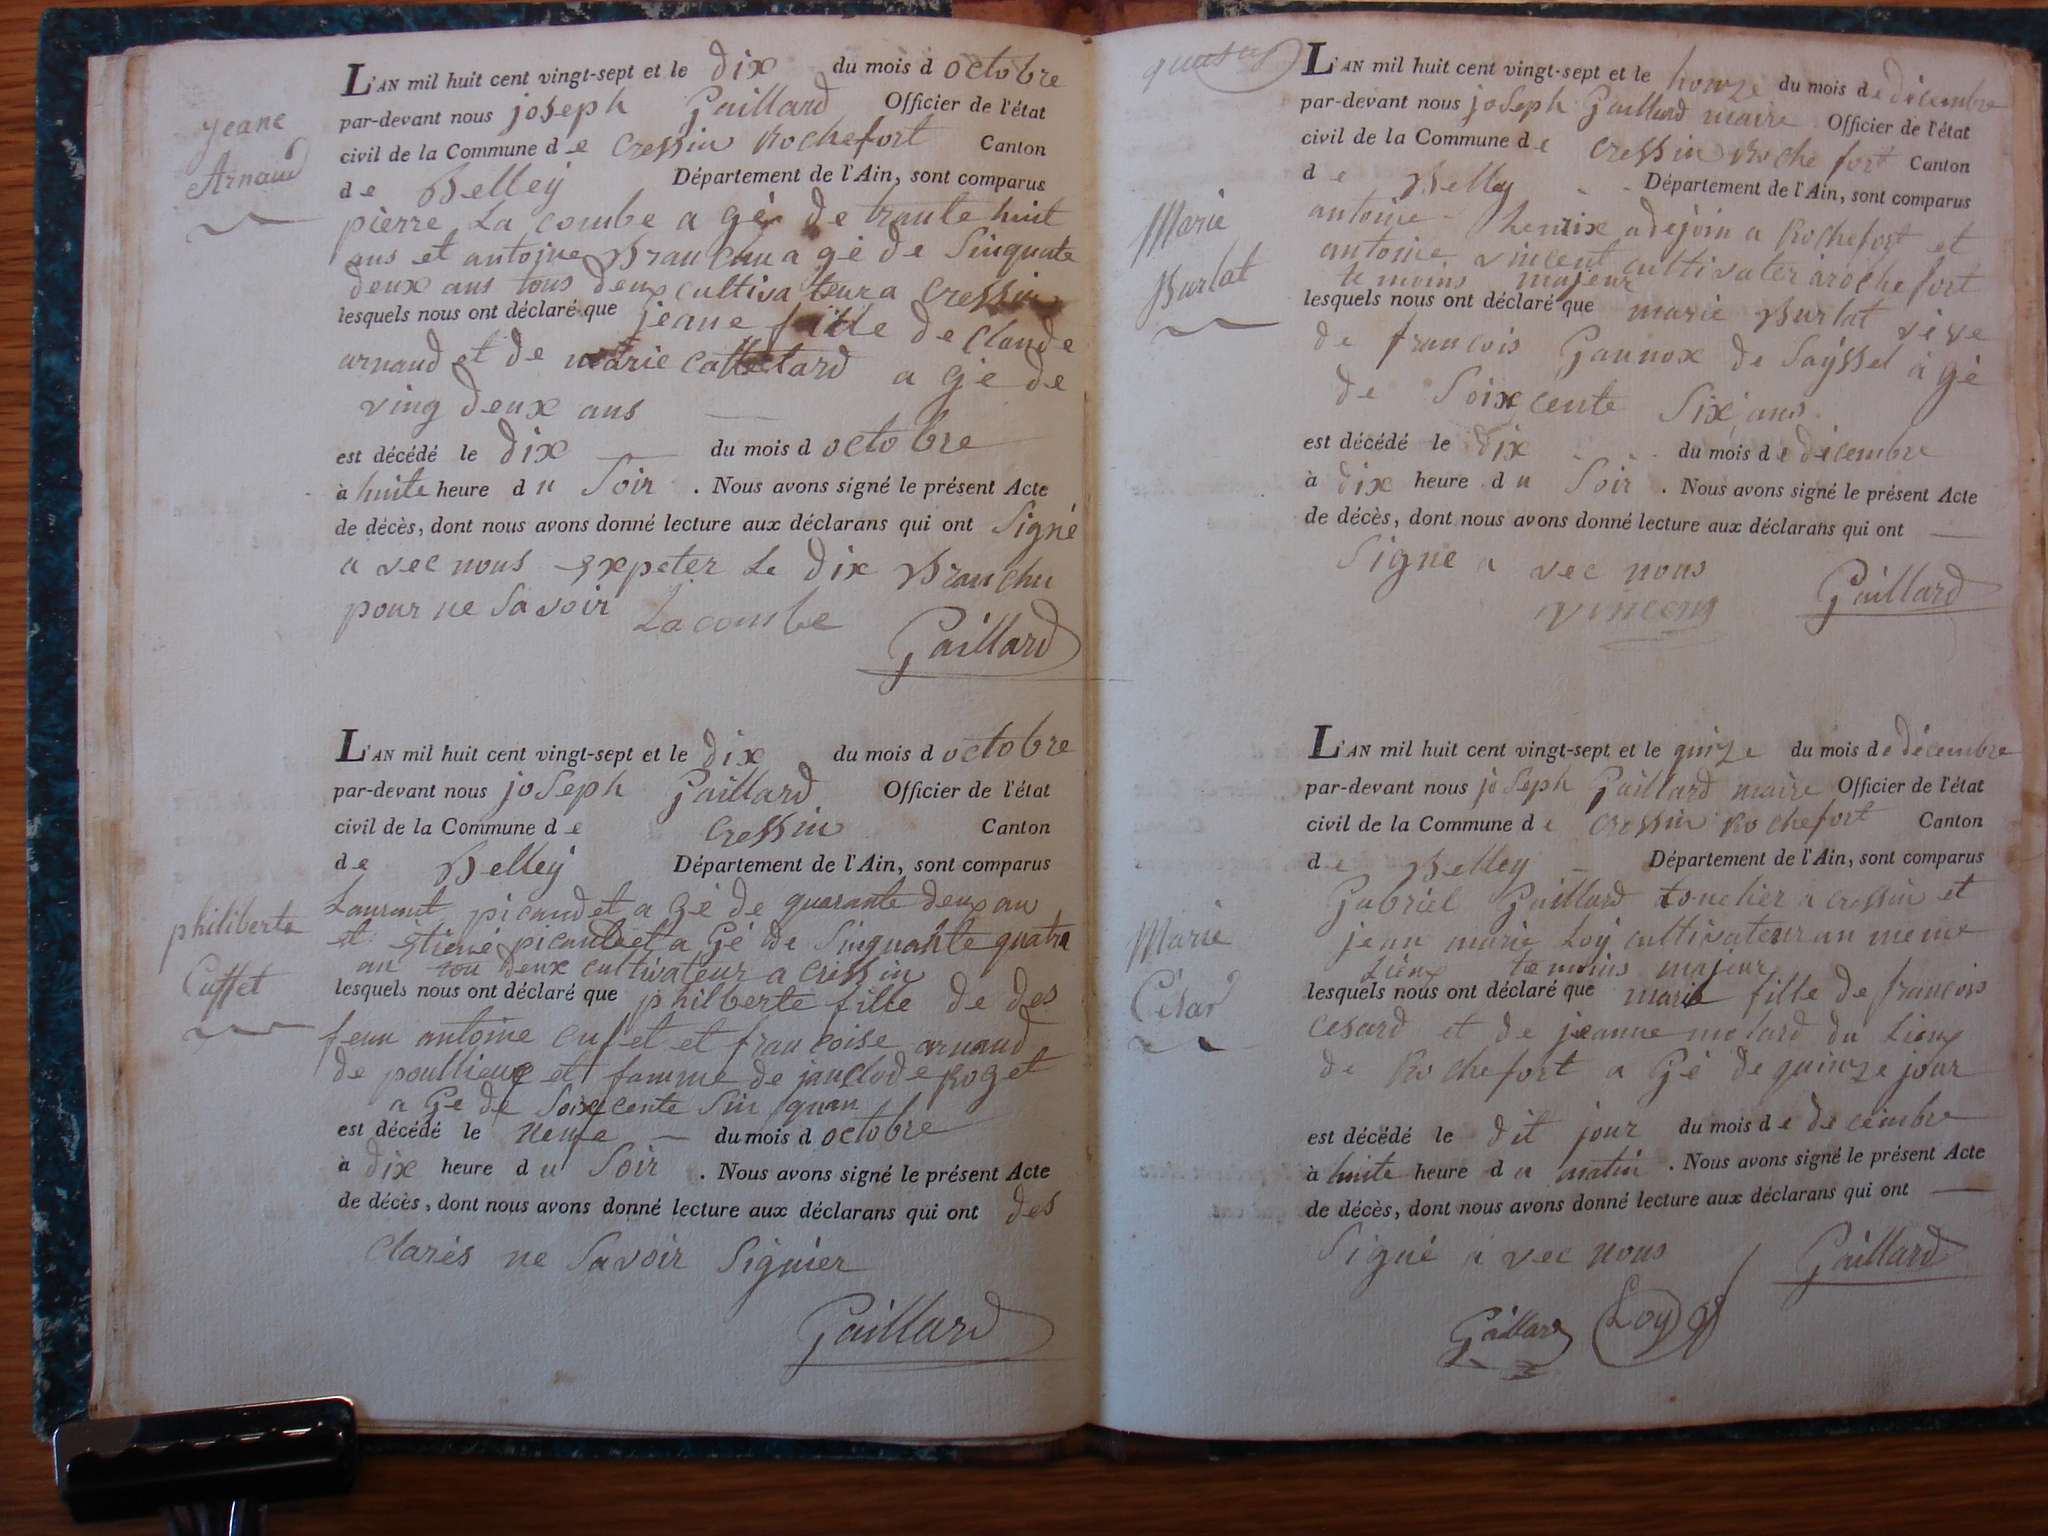 jeane
Arnaud
L'AN mil huit cent vingt-sept et le dix du mois d octobre
par-devant nous joseph Gaillard Officier de l'état
civil de la Commune de Cressin Rochefort Canton
de Belley Département de l'Ain, sont comparus
pierre La combe a gé de trante huit
ans et antoine Branchu a gé de Sinquate
deux ans tous deux cultivateur a Cressin
lesquels nous ont déclaré que jeane fille de claude
arnaud et de marie cattetard a gé de
ving deux ans
est décédé le dix du mois d octobre
à huite heure du Soir . Nous avons signé le présent Acte
de décès, dont nous avons donné lecture aux déclarans qui ont Signé
a vec nous expeter le dix Branchu
pour ne Savoir Lacombe
Gaillard
philiberte
Cuffet
L'AN mil huit cent vingt-sept et le dix du mois d octobre
par-devant nous joseph Gaillard Officier de l'état
civil de la Commune de Cressin Canton
de Belley Département de l'Ain, sont comparus
Laurant picaudet a gé de quarante deux an
et etiené picaudet a Gé de Sinquante quatre
an tou deux cultivateur a cressin
lesquels nous ont déclaré que philberte fille de des
feuu antoine cufet et francoise arnaud
de poullieux et famme de jauclode Roget
a Gé de Soixcente Sin quan
est décédé le neufe du mois d octobre
à dix heure du Soir . Nous avons signé le présent Acte
de décès, dont nous avons donné lecture aux déclarans qui ont des
clarés ne Savoir Signier
Gaillard
Marie
Burlat
L'AN mil huit cent vingt-sept et le honze du mois de décembre
par-devant nous joseph Gaillard maire Officier de l'état
civil de la Commune de Cressin Roche fort Canton
de Belley Département de l'Ain, sont comparus
antoine hendix adejoin a Rochefort et
antoine vincent cultivater à rochefort
te moins majeur
lesquels nous ont déclaré que marie Burlat veve
de francois Gaunox de Sayssel a gé
de Soixcente Six ans
est décédé le dix du mois de décembre
à dix heure du Soir . Nous avons signé le présent Acte
de décès, dont nous avons donné lecture aux déclarans qui ont
Signe a vec nous
vincent Gaillard
Marie
César
L'AN mil huit cent vingt-sept et le quinze du mois de décembre
par-devant nous joseph Gaillard maire Officier de l'état
civil de la Commune de Cressin Rochefort Canton
de Belley Département de l'Ain, sont comparus
Gabriel Gaillard tonelier a cressin et
jean marie Loy cultivateur au meme
Lieux temoins majeur
lesquels nous ont déclaré que marie fille de francois
cesard et de jeanne molard du Lieux
de Rochefort a Gé de quinze jour
est décédé le dit jour du mois de décembre
à huite heure du matin . Nous avons signé le présent Acte
de décès, dont nous avons donné lecture aux déclarans qui ont
Signé a vec nous Gaillard
Gaillard Loy